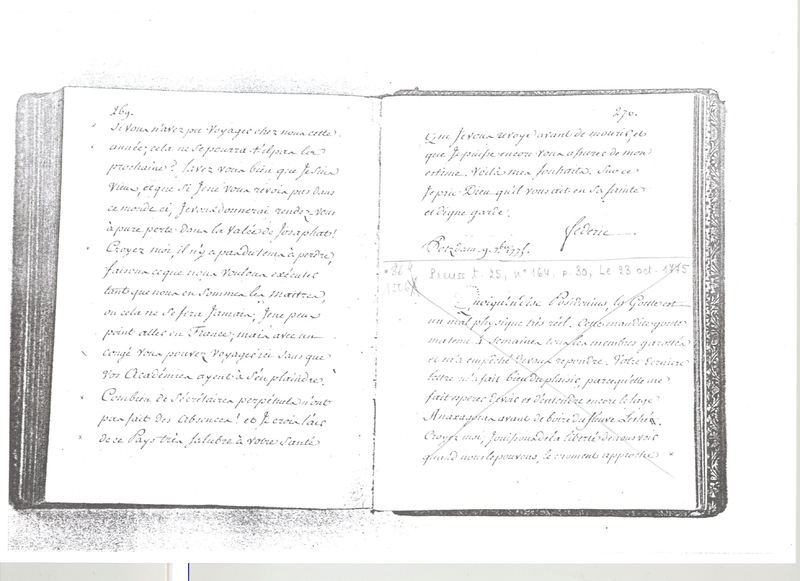 269.
Si vous n'avez pu voyager chez nous cette
année, cela ne se pourra t'il pas la
prochaine? Savez vous bien que Je suis
vieux, et que si Je ne vous revois pas dans
ce monde ci, Je vous donnerai rendez vous
à pure perte dans la Valée de Josaphat!
Croyez moi, il n'y a pas du tems à perdre,
faisons ce que nous voulons exécuter
tant que nous en sommes les maîtres,
ou cela ne se fera Jamais, Je ne peux
point aller en France, mais avec un
congé vous pouvez voyager ici sans que
vos Académies ayent à s'en plaindre.
Combien de Sécrétaires perpétuels n'ont
pas fait des absences! et Je crois l'air
de ce Pays très salubre à votre Santé
270.
Que Je vous revoye avant de mourir, et
que Je puisse encore vous assurer de mon
estime. Voilà mes souhaits. Sur ce
Je prie Dieu qu'il vous ait en Sa sainte
et digne garde.
Federic
Potzdam 9. 1775.
Preuss t. 25, n° 164, p. 30, Le 23 oct. 1775
Quoiqu'en dise Posidonius, la Goutte est
un mal physique très réel. Cette maudite goutte
m'a tenu 4 semaines tous les membres garottés
et m'a empêché de vous repondre. Votre derniere
lettre m'a fait bien du plaisir, parcequ'elle me
fait esperer de voir et d'entendre encore le sage
Anaxagoras avant de boire du fleuve Léthé.
Croyez moi, Jouissons de la liberté de nous voir
quand nous le pouvons, le moment approche